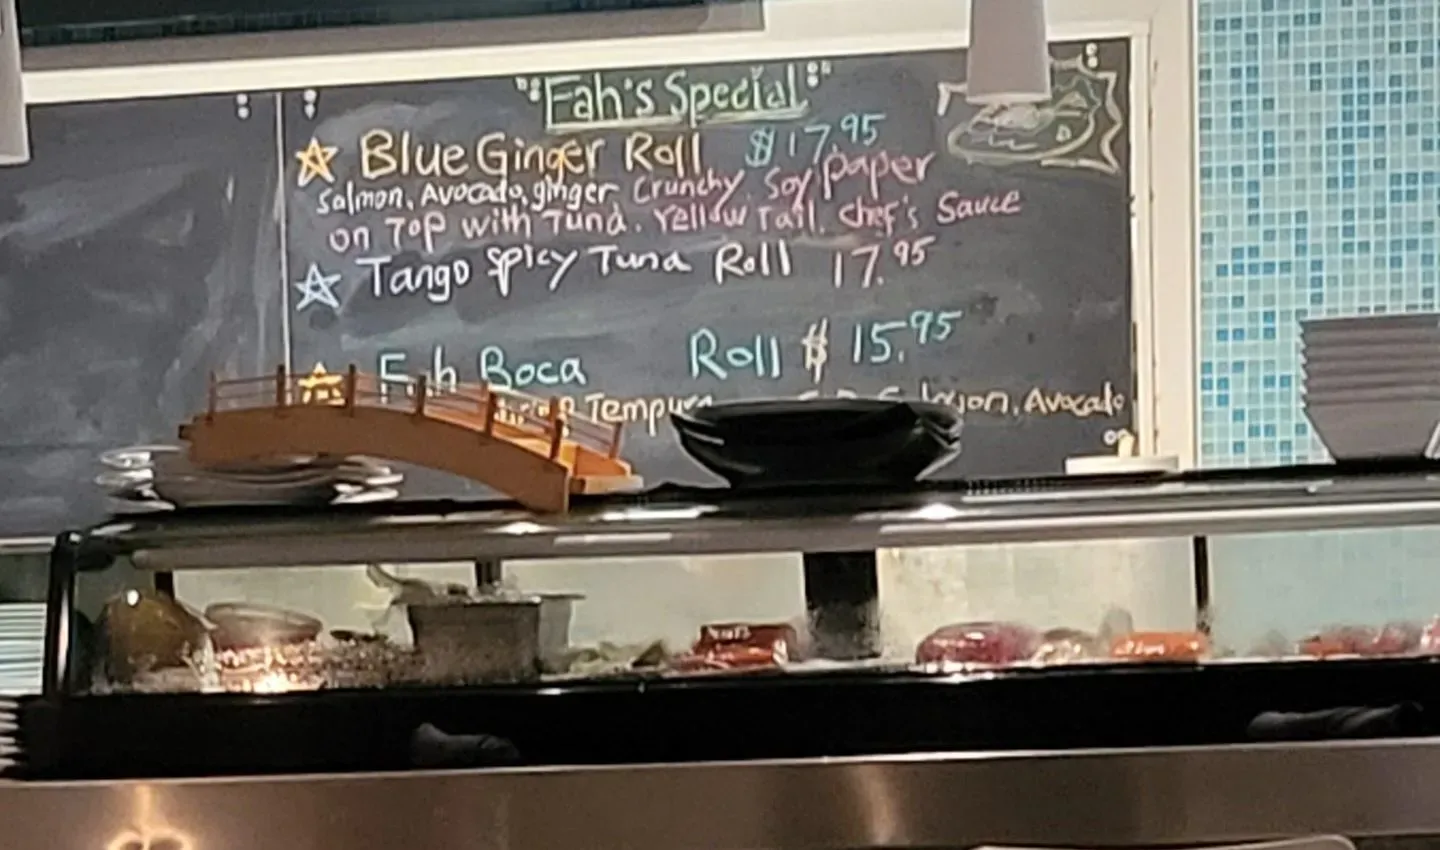 Fah's Special
Blue Ginger Roll $17.95
Salmon, Avocado, ginger, Crunchy. Soy paper
on Top with Tuna. Yellow Tail. Chef's Sauce
Tango Spicy Tuna Roll 17.95
Boca Roll $15.95
Avocado